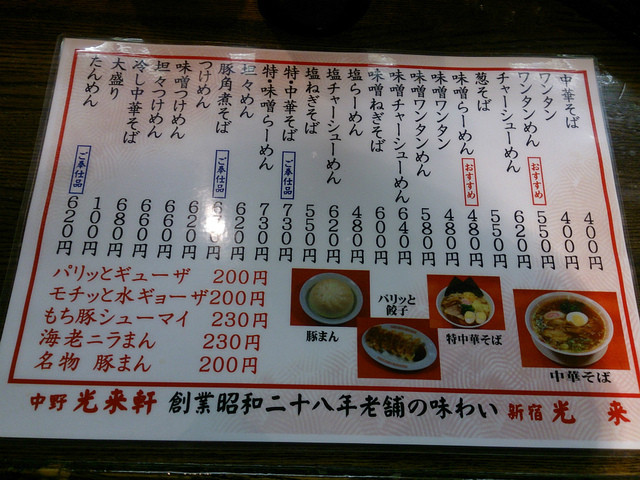 中華そば 400円
ワンタン 400円
ワンタンめん おすすめ 550円
チャーシューめん 620円
葱そば 550円
味噌らーめん おすすめ 480円
味噌ワンタン 480円
味噌ワンタンめん 580円
味噌チャーシューめん 640円
味噌ねぎそば 600円
塩らーめん 480円
塩チャーシューめん 620円
塩ねぎそば 550円
特・中華そば ご奉仕品 730円
特・味噌らーめん 730円
坦々めん 620円
豚角煮そば ご奉仕品
つけめん 620円
味噌つけめん 660円
坦々つけめん 660円
冷し中華そば 680円
大盛り 100円
たんめん ご奉仕品 620円
パリッとギューザ 200円
モチッと水ギョーザ200円
もち豚シューマイ 230円
海老ニラまん 230円
名物 豚まん 200円
豚まん
パリッと
餃子
特中華そば
中華そば
中野 光来軒 創業昭和二十八年老舗の味わい 新宿 光 来